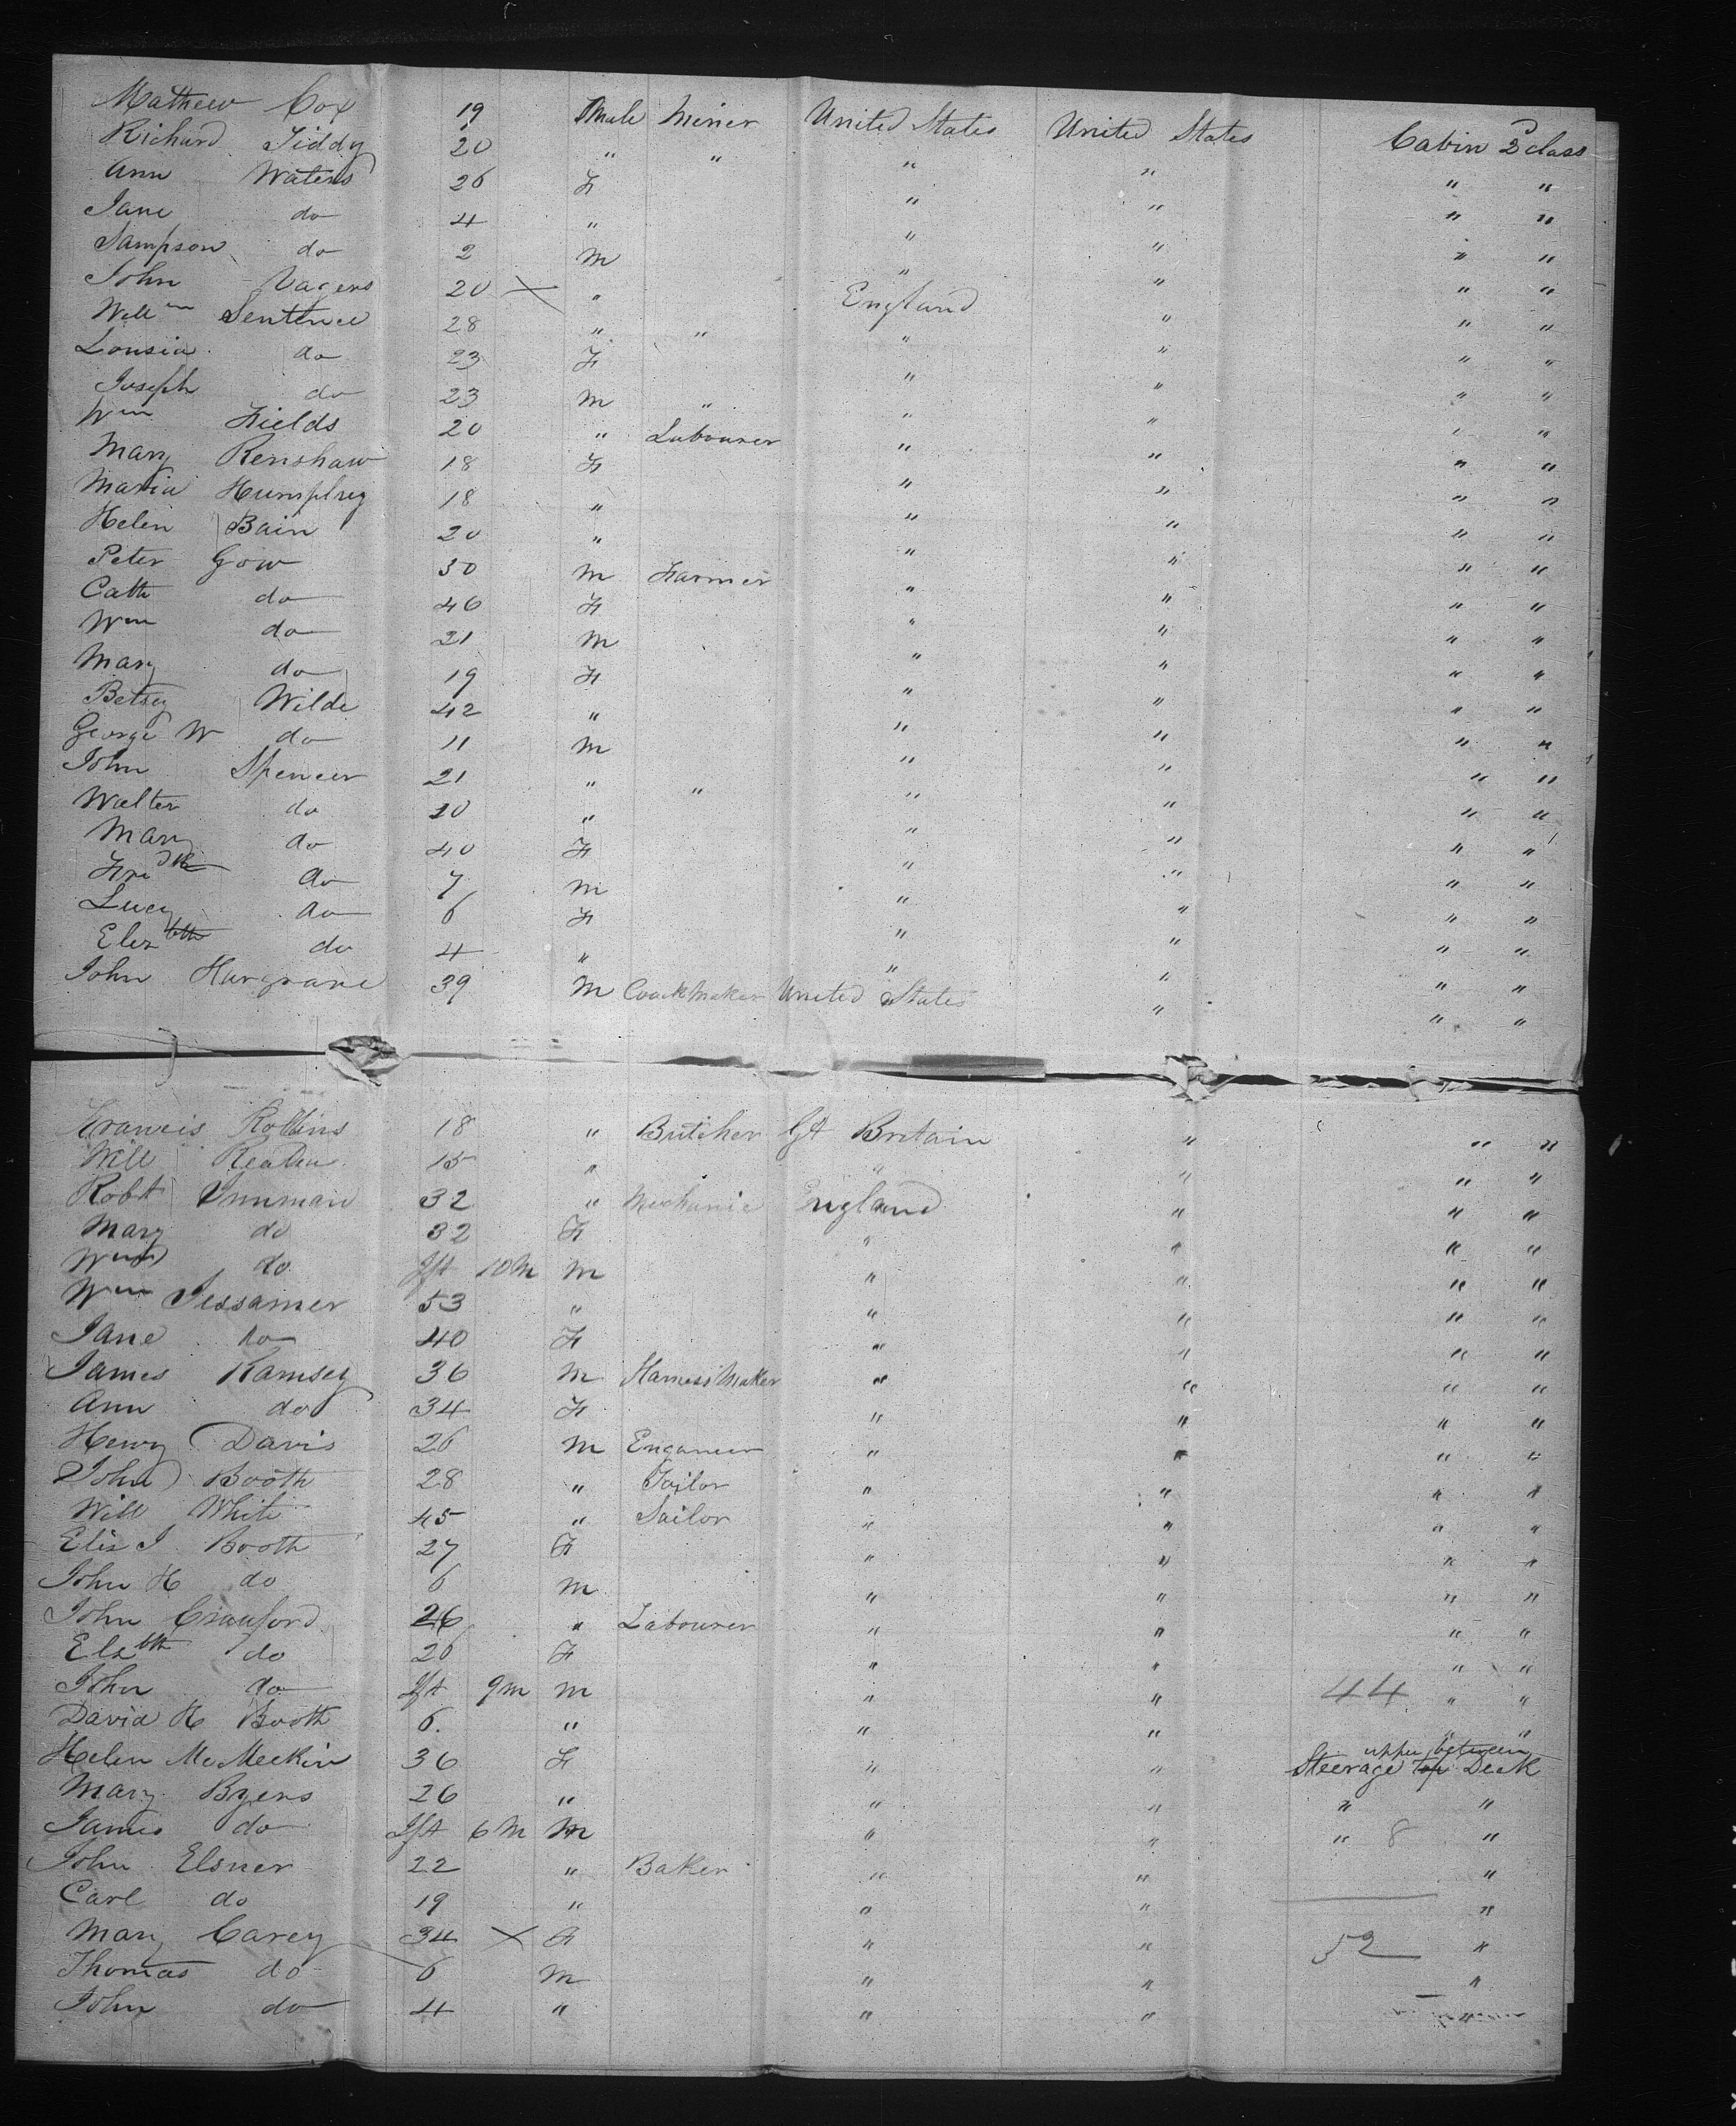 Mathew Cox 19 Male Miner United States United States Cabin 2 class
Richard Tiddy 20 " " " " " "
Ann Waters 26 F " " " "
Jane do 4 " " " " "
Sampson do 2 M " " " "
John Vagers 20 X " England " " "
Willm Sentence 28 " " " " " "
Lousia do 23 F " " " "
Joseph do 23 M " " " " "
Wm Fields 20 " Labourer " " " "
Mary Renshaw 18 F " " " "
Maria Humphrey 18 " " " " "
Helen Bain 20 " " " " "
Peter Gow 50 M Farmer " " " "
Cath do 46 F " " " "
Wm do 21 M " " " "
Mary do 19 F " " " "
Betsey Wilde 42 " " " " "
George W do 11 M " " " "
John Spencer 21 " " " " " "
Walter do 10 " " " " "
Mary do 40 F " " " "
Fredk do 7 M " " " "
Lucy do 6 F " " " "
Elizbth do 4 " " " " "
John Hargrave 39 M Coachmaker United States " " "
Francis Robbins 18 " Butcher Gt Britain " " "
Will 15 " " " " "
Robt Inman 32 " Mechanic England " " "
Mary do 32 F " " " "
Wm do Ift 10 M M " " " "
Wm Jessamer 53 " " " " "
Jane do 40 F " " " "
James Ramsey 36 M Harness Maker " " " "
Ann do 34 F " " " "
Henry Davis 26 M Enganeer " " " "
John Booth 28 " Tailor " " " "
Will White 45 " Sailor " " " "
Eliz J Booth 27 F " " " "
John H do 6 M " " " "
John Crawford 26 " Labourer " " " "
Elzbth do 26 F " " " "
John do Ift 9m M " " 44 " "
David H Booth 6. " " " " "
Helen McMeekin 36 F " " Steerage upper between Deck
Mary Byers 26 " " " " "
James do Ift 6 M M " " " 8 "
John Elsner 22 " Baker " " "
Carl do 19 " " " "
Mary Carey 34 X F " " 52 "
Thomas do 6 M " " "
John do 4 " " "